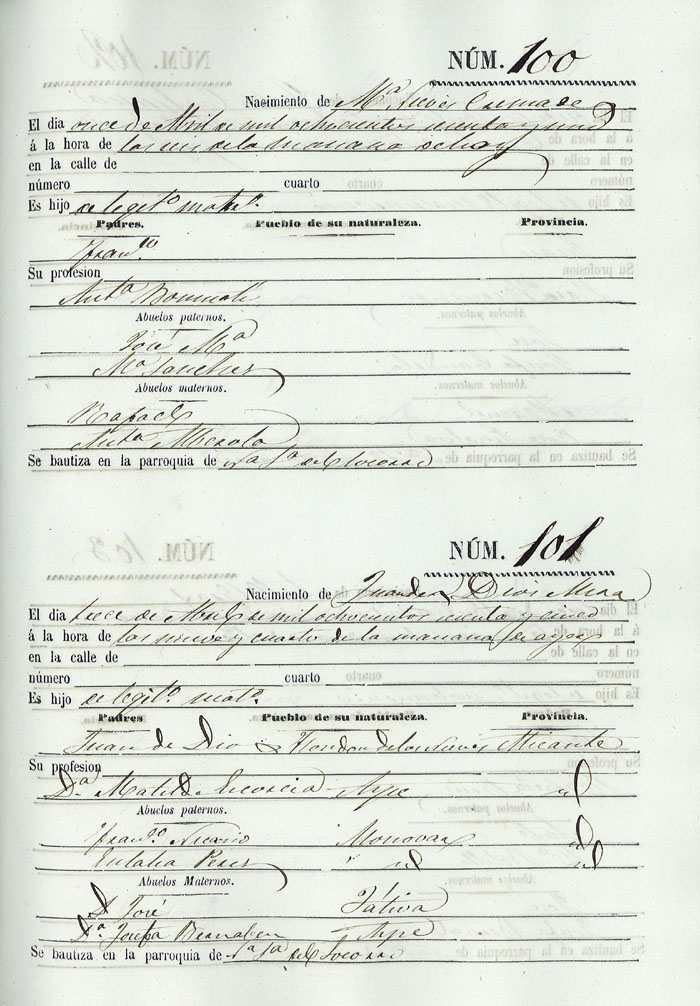 NÚM. 100
Nacimiento de Mª Nieves Cremades
El dia once de Abril de mil ochocientos sesenta y
á la hora de las seis de la mañana de hoy
en la calle de
número cuarto
Es hijo de legitº matº.
Padres. Pueblo de su naturaleza. Provincia.
Franco
Su profesion
Antª
Abuelos paternos.
José Mª
Mª Sanches
Abuelos maternos.
Rafael
Antª
Se bautiza en la parroquia de Nª Sª del Socorro
NÚM. 101
Nacimiento de Juan de Dios Mira
El dia trece de Abril de mil ochocientos sesenta y cinco
á la hora de las nueve y cuarto de la mañana de ayer
en la calle de
número cuarto
Es hijo de legitº matº.
Padres Pueblo de su naturaleza. Provincia.
Juan de Dio Hondon de las Nieves Alicante
Su profesion
Dª Matilde Aspe id
Abuelos paternos.
Franco Nicasio Monovar id
Eulalia Peres id id
Abuelos Maternos.
D José Játiva
Dª Josefa Bernabeu Aspe
Se bautiza en la parroquia de Nª Sª del Socorro